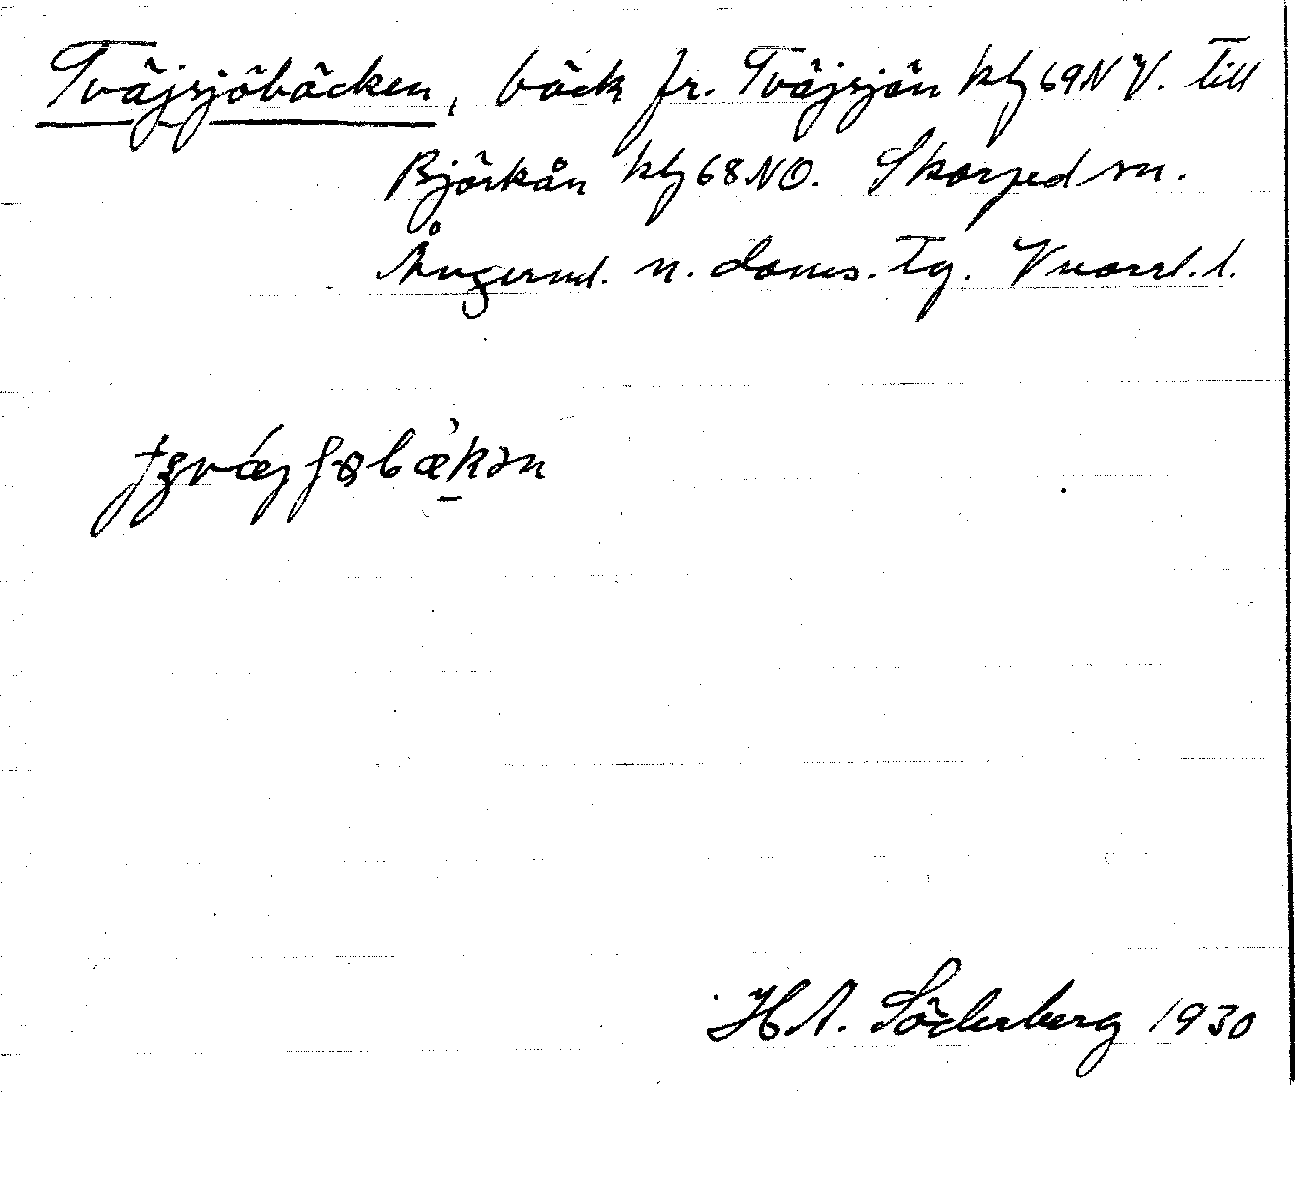 Tväjsjöbäcken, bäck fr. Tväjsjön kbl 69 NV. till
Björkån kbl 68 NO. Skorped sn.
Ångerml. n. doms. Tg. Vnorrl. l.
H A. Söderberg 1930